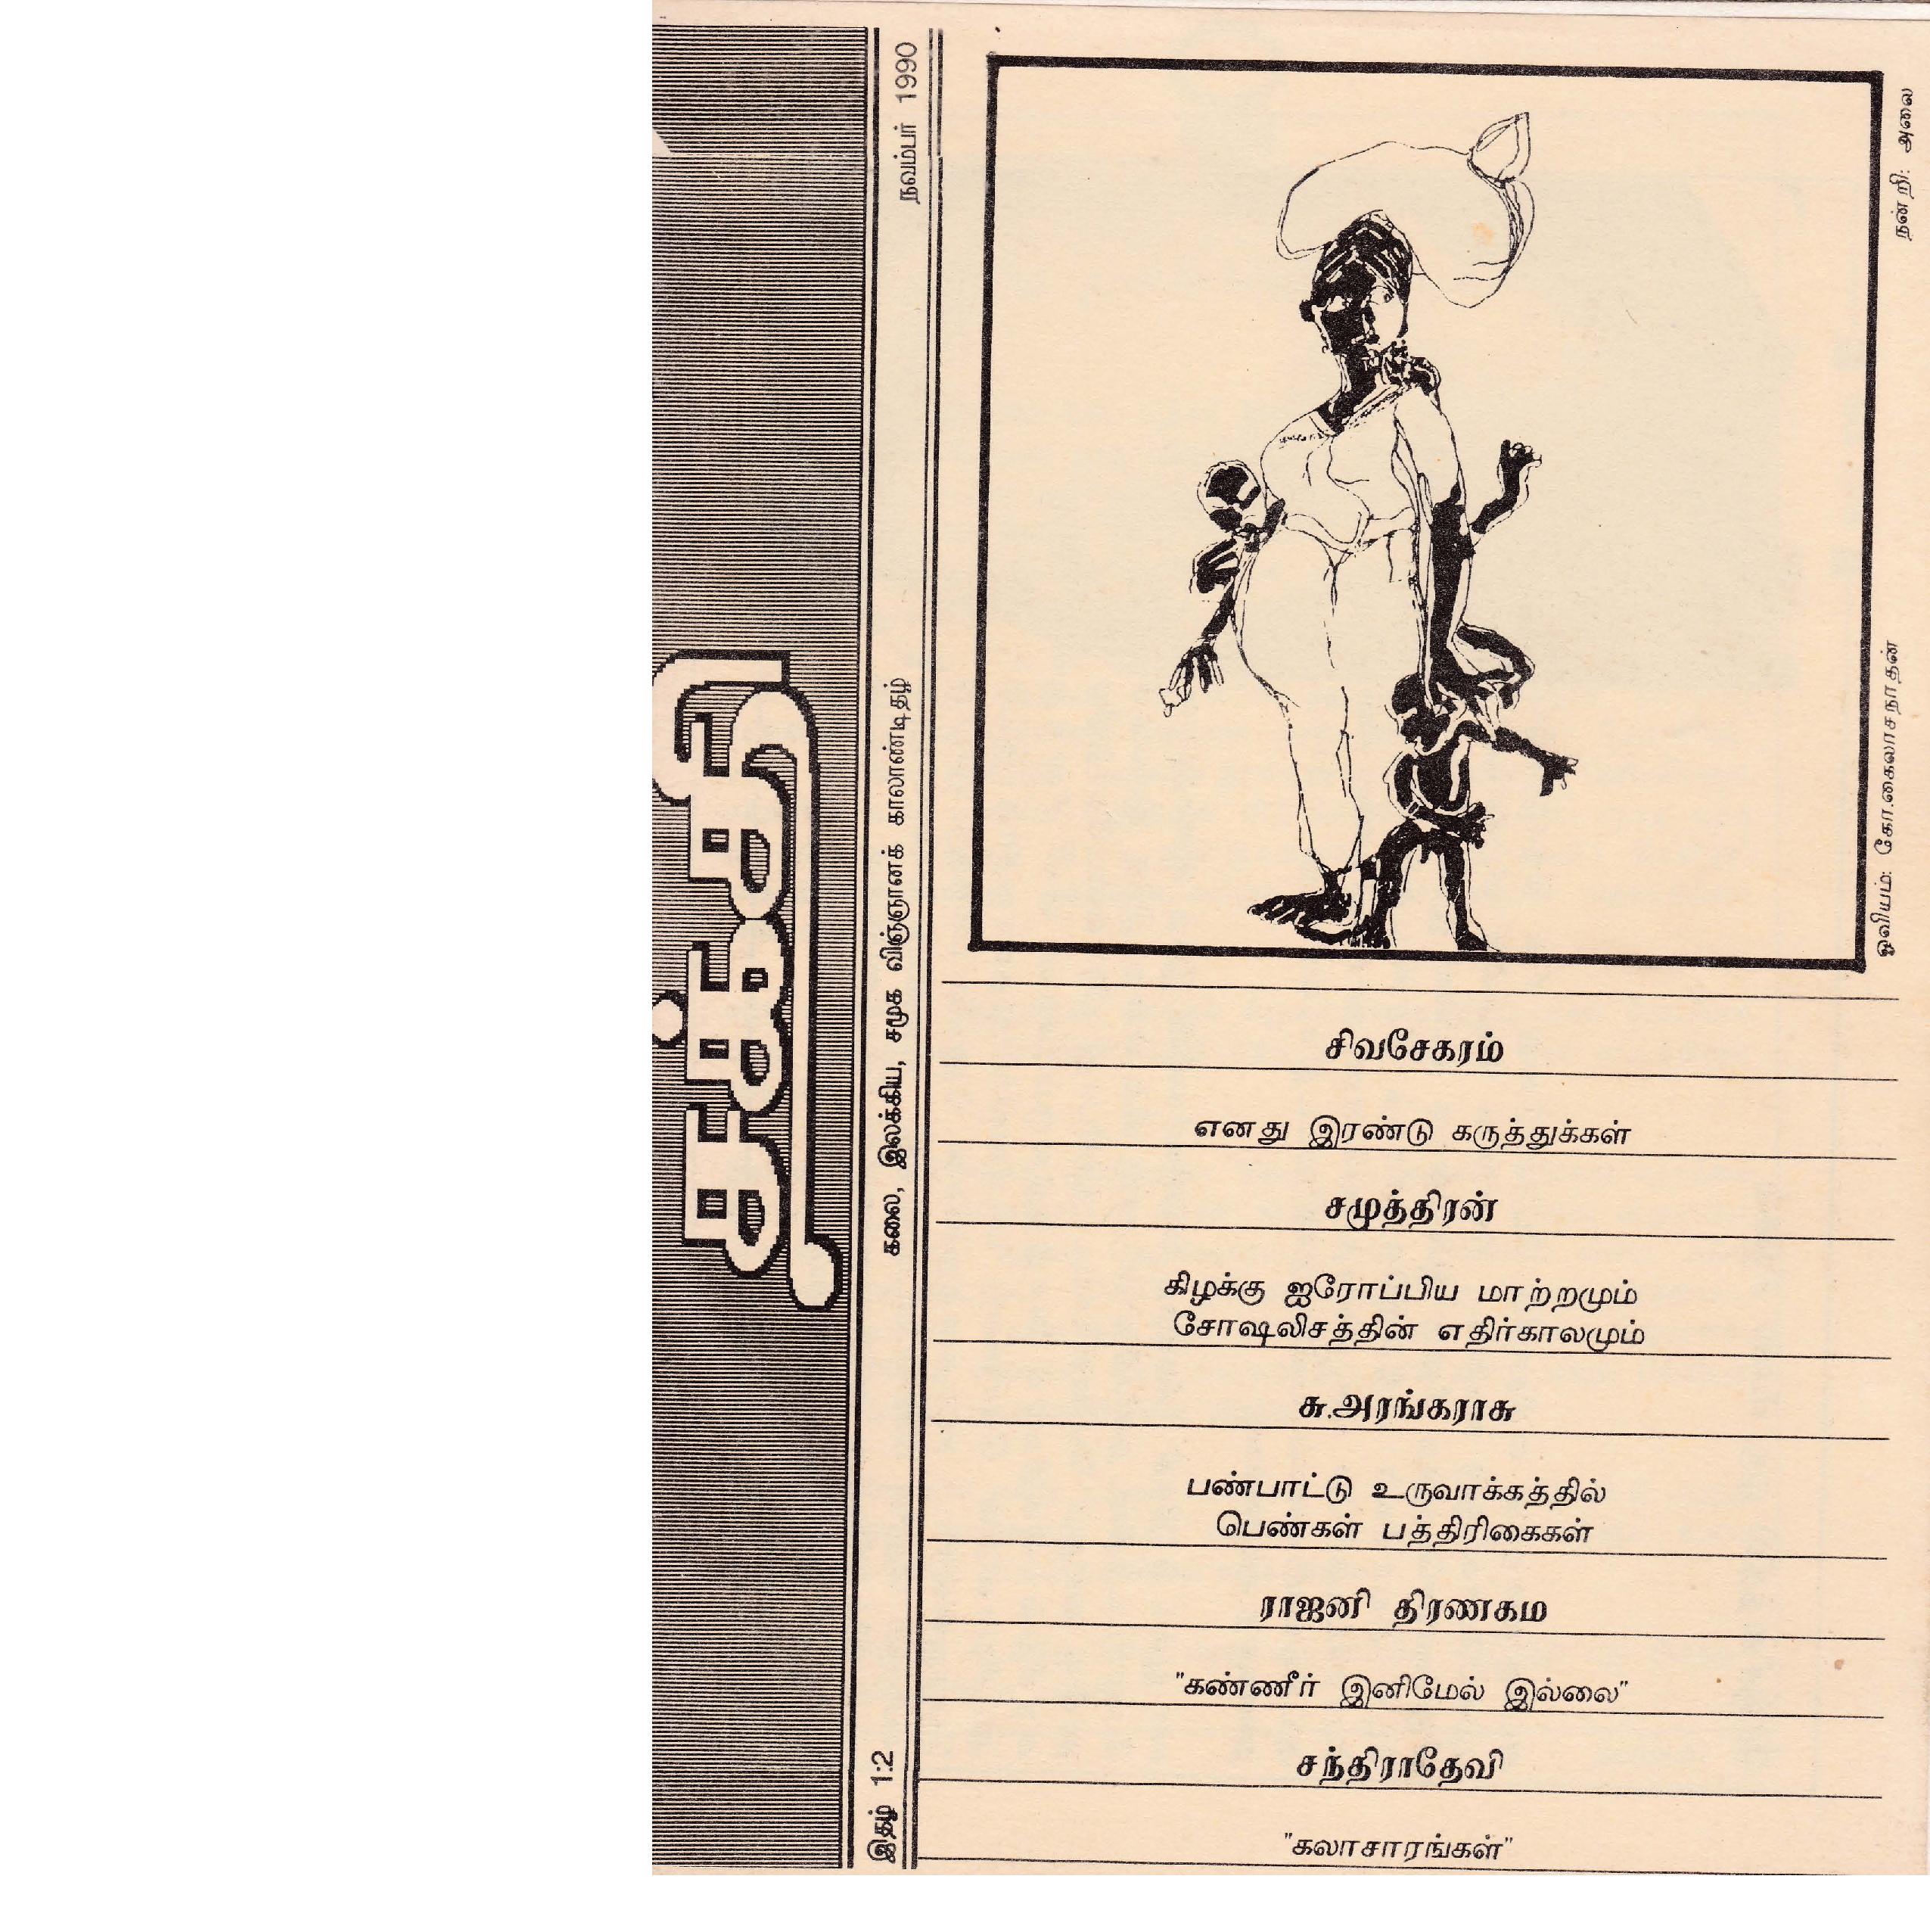 சக்தி
இதழ் 1:2
கலை, இலக்கிய, சமூக விஞ்ஞானக் காலாண்டிதழ்
நவம்பர் 1990
ஓவியம்: கோ.கைலாசநாதன்
நன்றி: அலை
சிவசேகரம்
எனது இரண்டு கருத்துக்கள்
சமுத்திரன்
கிழக்கு ஐரோப்பிய மாற்றமும்
சோஷலிசத்தின் எதிர்காலமும்
சு.அரங்கராசு
பண்பாட்டு உருவாக்கத்தில்
பெண்கள் பத்திரிகைகள்
ராஜனி திரணகம
"கண்ணீர் இனிமேல் இல்லை"
சந்திராதேவி
"கலாசாரங்கள்"